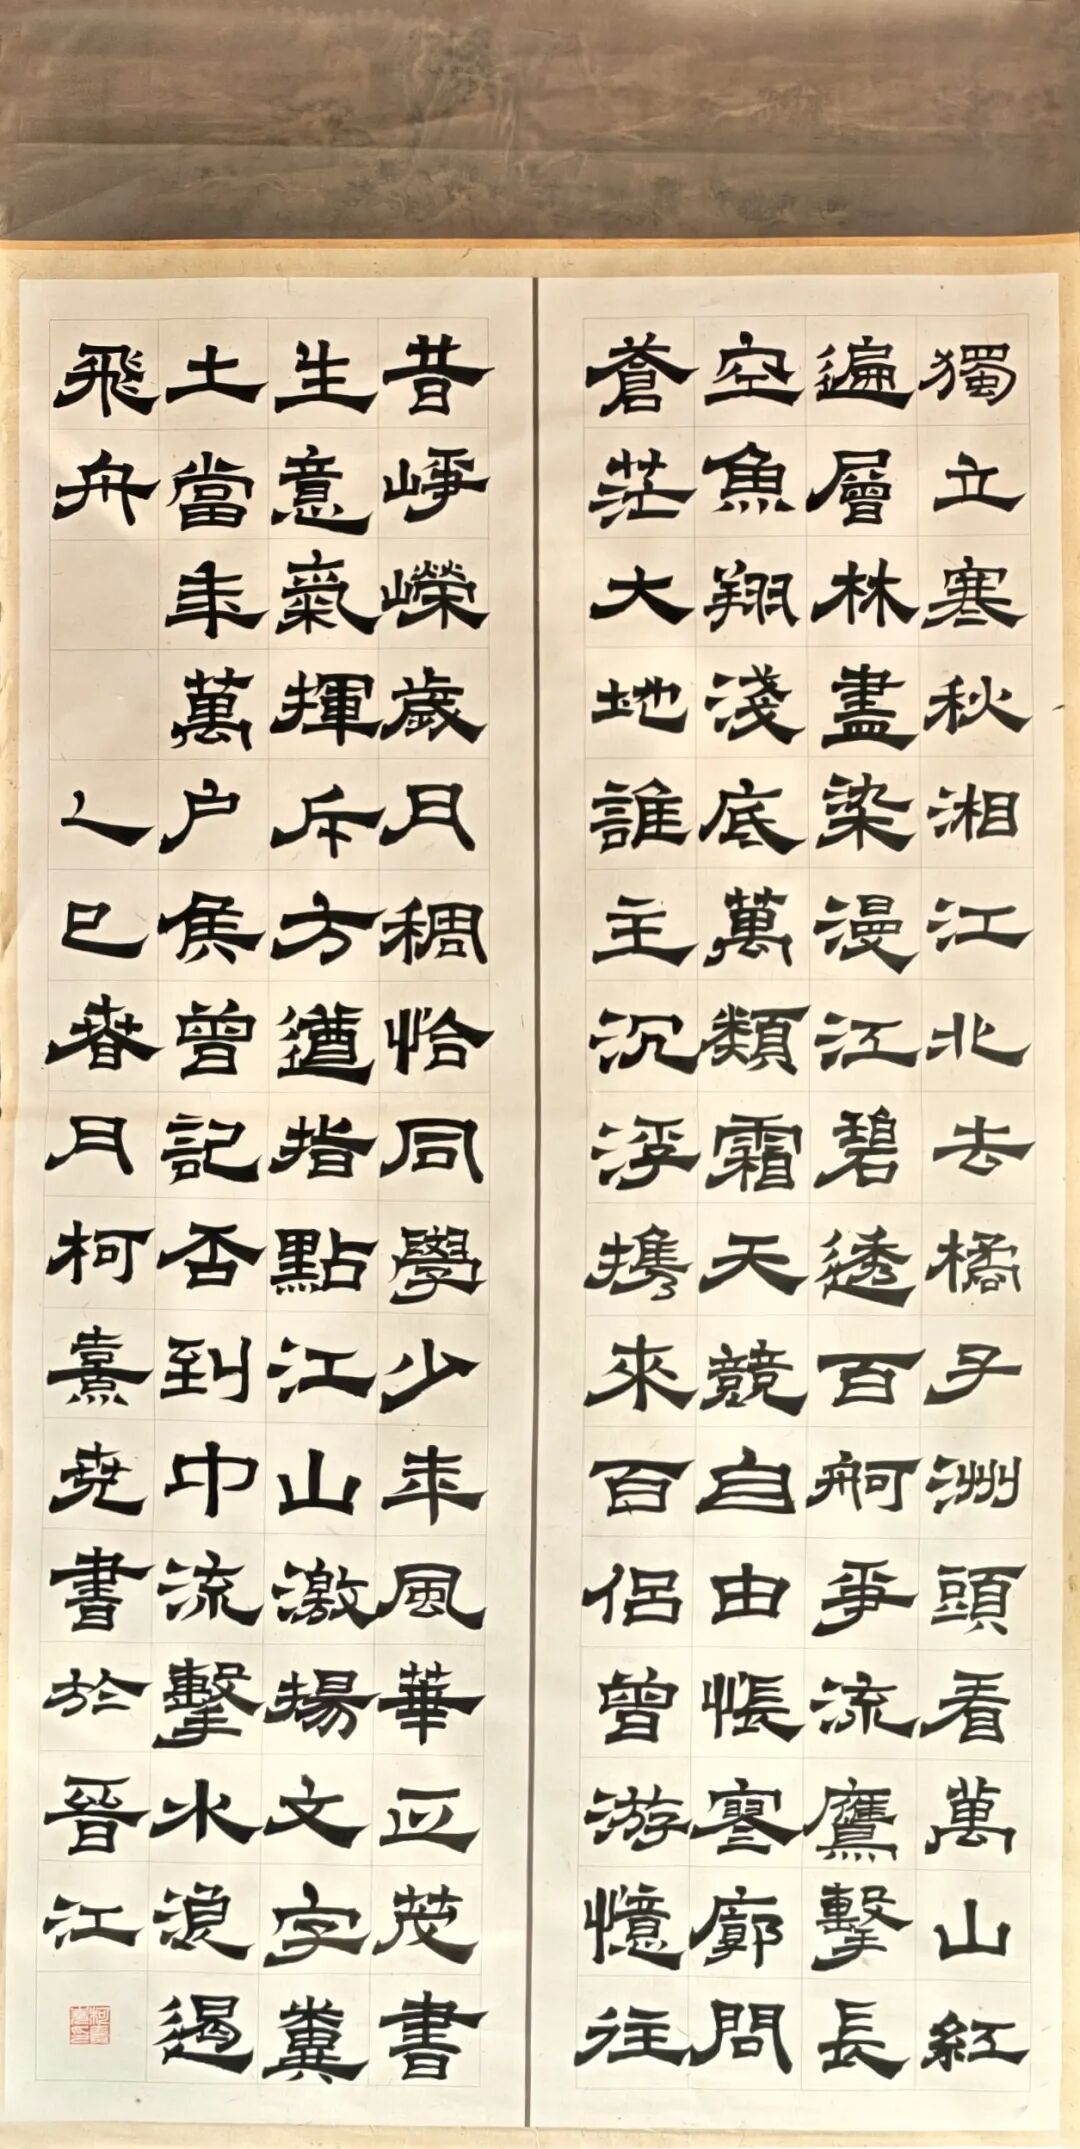 獨立寒秋湘江北去橘子洲頭看萬山紅
遍層林盡染漫江碧透百舸爭流鷹擊長
空魚翔淺底萬類霜天競自由悵寥廓問
蒼茫大地誰主沉浮携來百侶曾游憶往
昔崢嶸歲月稠恰同學少年風華正茂書
生意氣揮斥方遒指點江山激揚文字糞
土當年萬户侯曾記否到中流擊水浪遏
飛舟 乙巳春月柯熹尭書於晉江